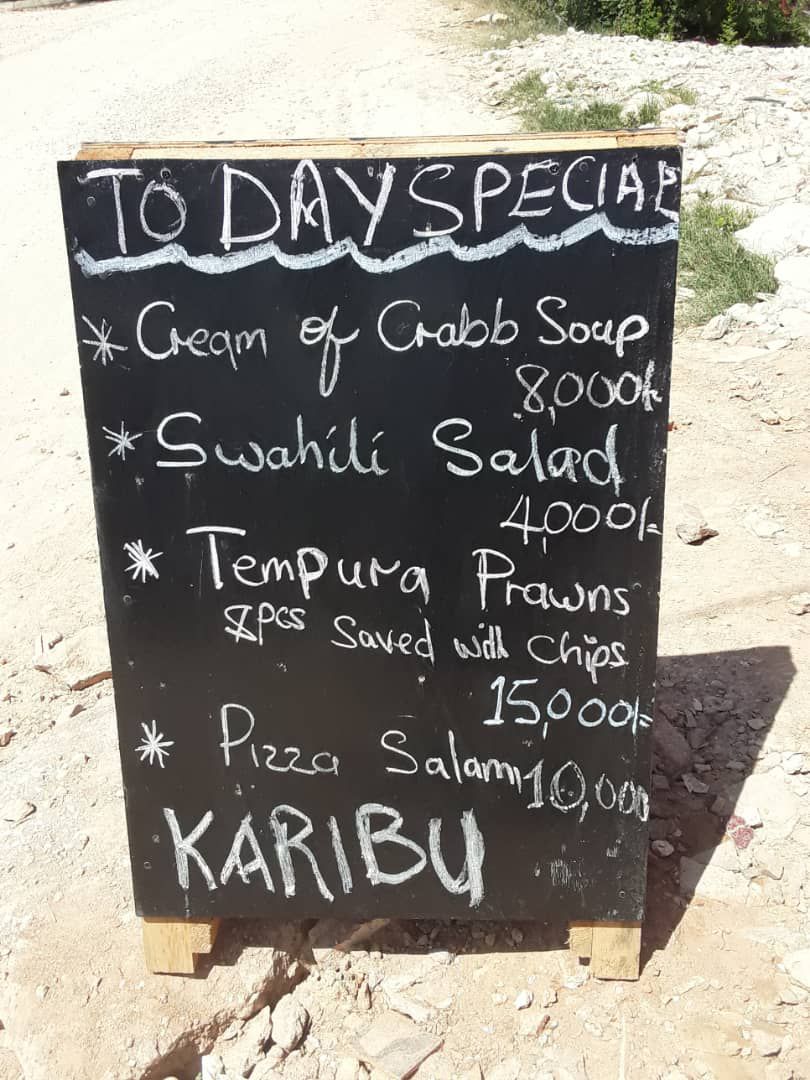 TO DAY SPECIAL
* Cream of Crabb Soup
8,000/=
* Swahili Salad
4,000/=
* Tempura Prawns
8pcs Saved with chips
15,000/=
* Pizza Salami 10,000
KARIBU